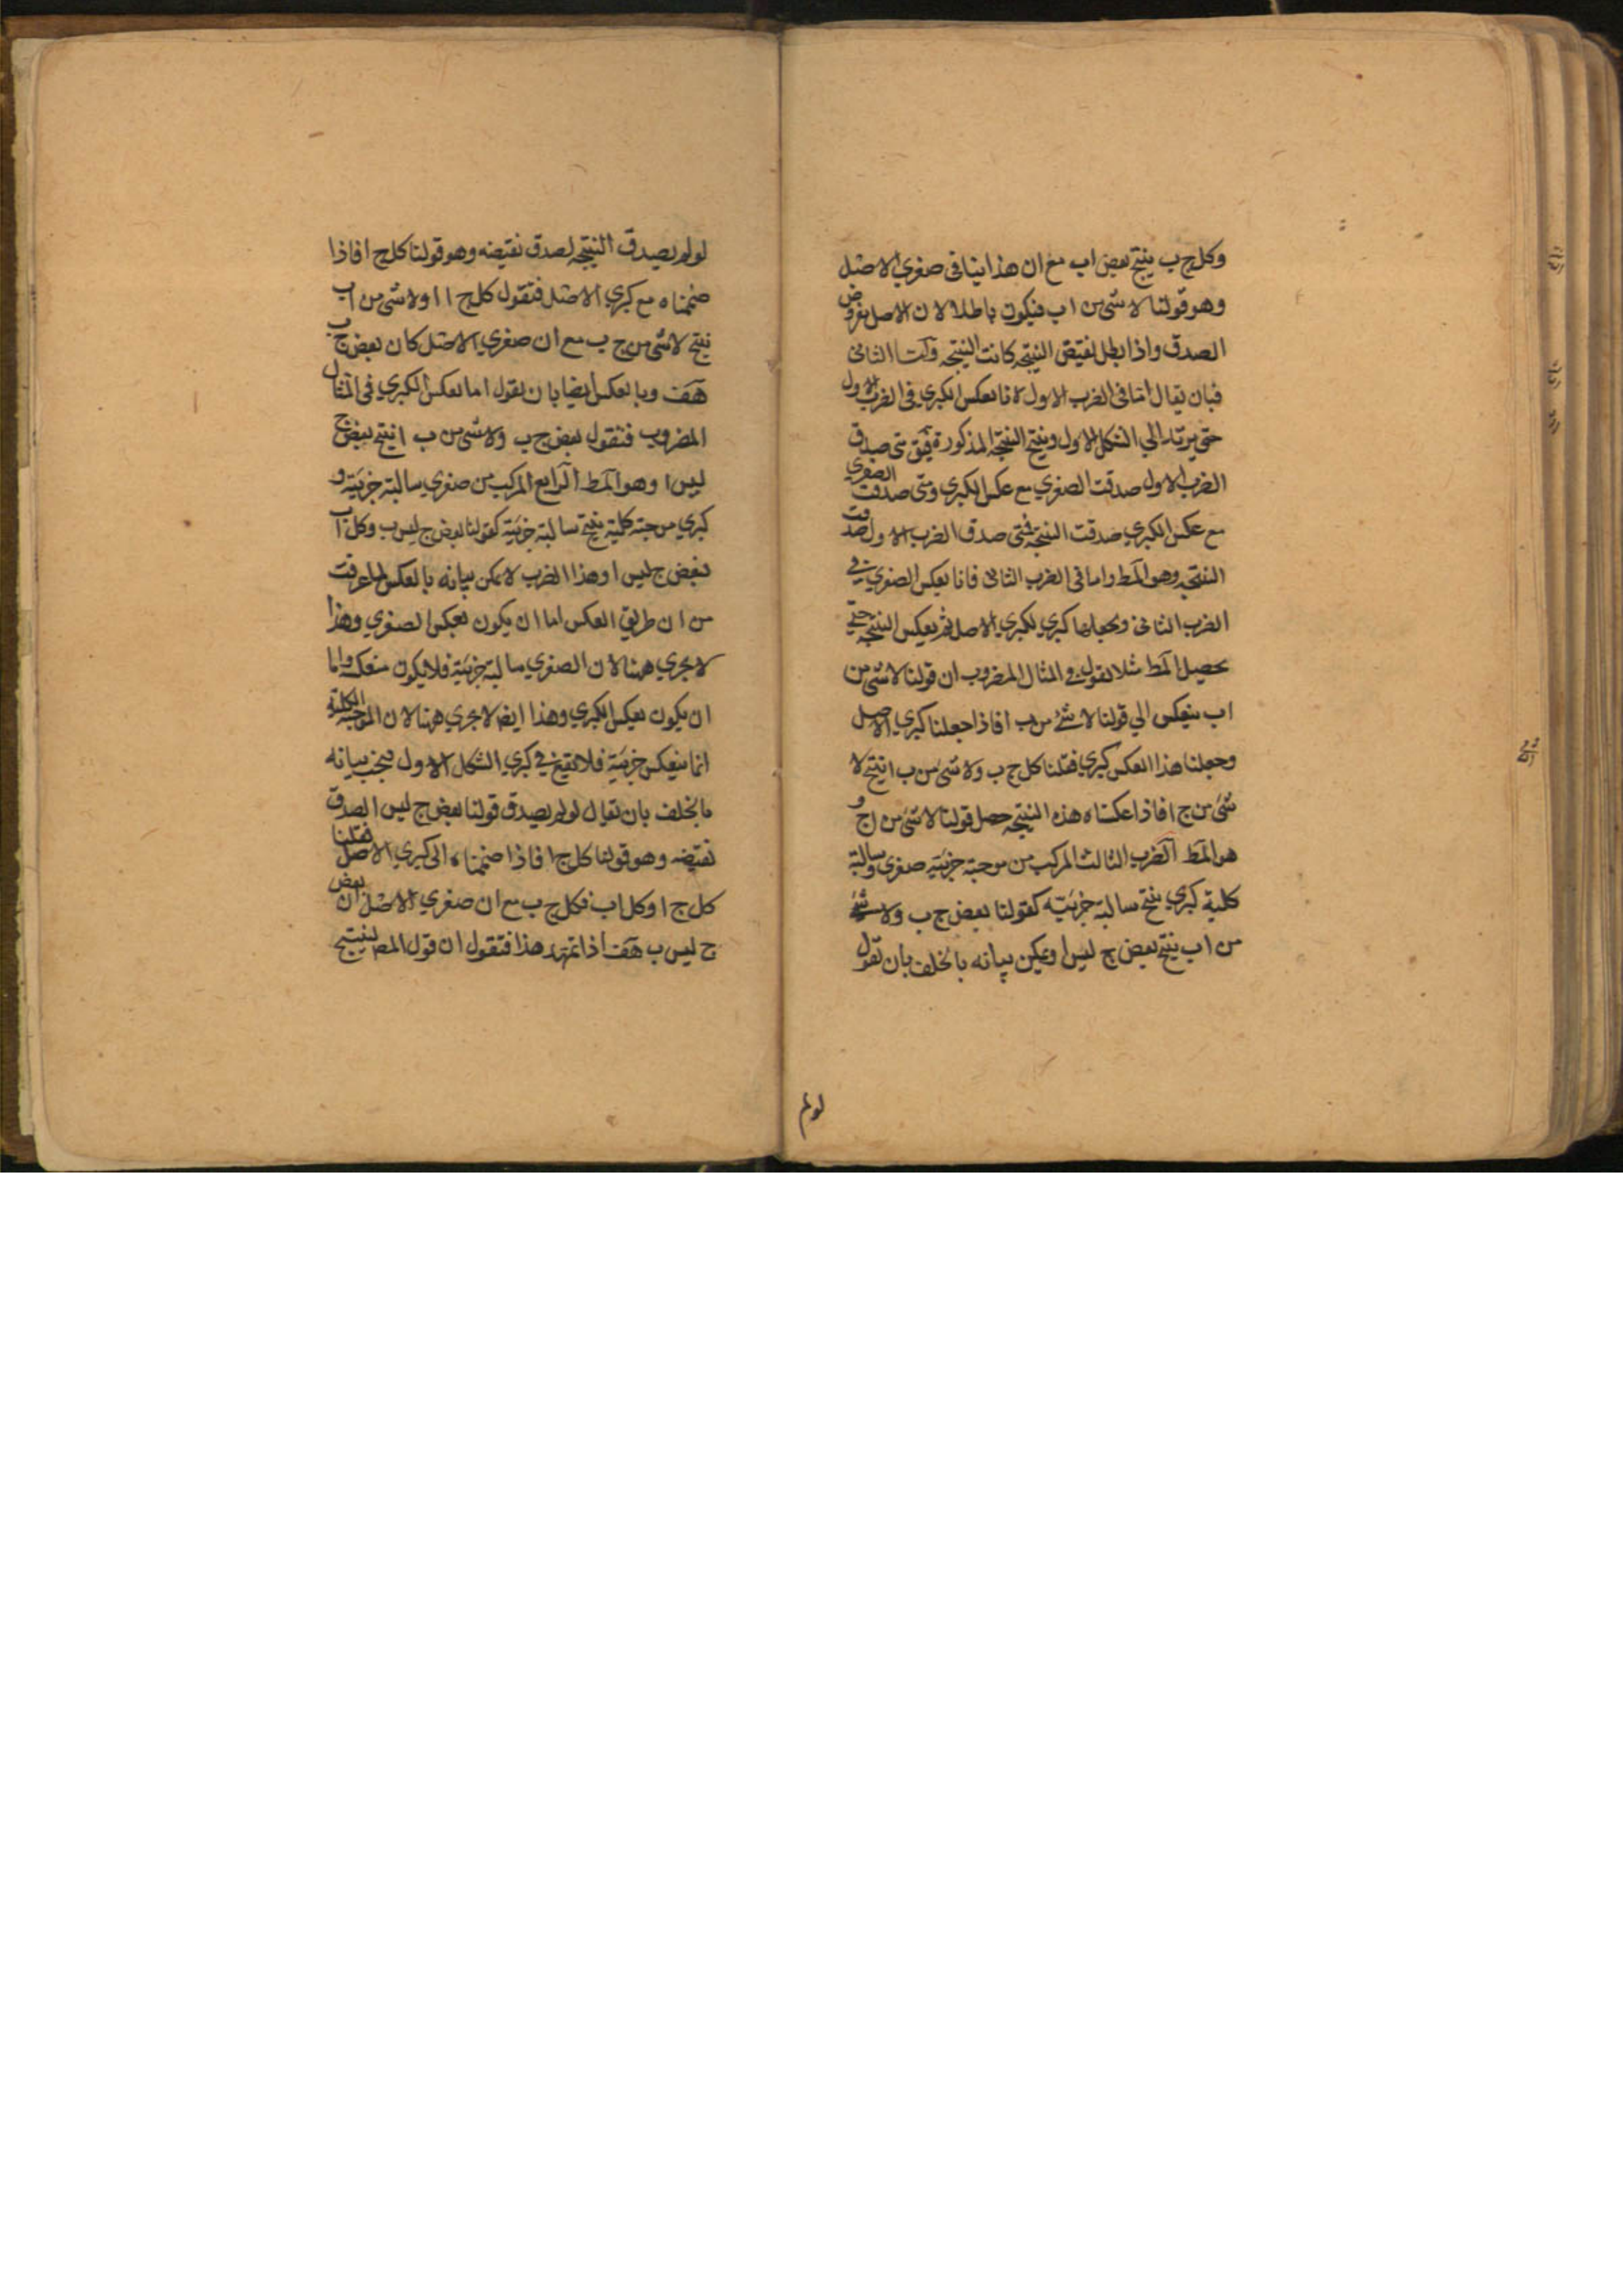 وكل ج ب ينتج بعض اب مع ان هذا ينافى صغري الاصل
وهو قولنا لا شئ من اب فيكون باطلا لان الاصل مفروض
الصدق واذا بطل نقيض النتيجه كانت النتيجه واما الثانى
فبان يقال اما فى الضرب الاول لانا نعكس الكبري فى الضرب الاول
حتى يرتد الي الشكل الاول وينتج النتيجة المذكورة متى صدق
الضرب الاول صدقت الصغري مع عكس الكبري ومتى صدقت الصغري
مع عكس الكبري صدقت النتيجه فمتى صدق الضرب الاول صدقت
النتيجه وهو المط واما فى الضرب الثانى فانا نعكس الصغري في
الضرب الثانى ونجعلها كبري لكبري الاصل ثم نعكس النتيجه حتي
يحصل المط مثلا نقول في المثال المضروب ان قولنا لا شئ من
اب ينعكس الي قولنا لا شئ من ب ا فاذا جعلنا كبري الاصل
وجعلنا هذا العكس كبري فقلنا كل ج ب ولا شئ من ب ا ينتج لا
شئ من ج ا فاذا عكسناه هذه النتيجه حصل قولنا لا شئ من ا ج و
هو المط الضرب الثالث المركب من موجبة جزئية صغرى وسالبة
كلية كبري ينتج سالبة جزئيه كقولنا بعض ج ب ولا شئ
من اب ينتج بعض ج ليس ا ويمكن بيانه بالخلف بان نقول
لولم
لولم يصدق النتيجه لصدق نقيضه وهو قولنا كل ج ا فاذا
ضممناه مع كبري الاصل فنقول كل ج ا ا ولا شئ من اب
ينتج لا شئ من ج ب مع ان صغري الاصل كان بعض ج ب
هف وبالعكس ايضا بان نقول اما نعكس الكبري فى المثال
المضروب فنقول بعض ج ب ولا شئ من ب ا ينتج بعض ج
ليس ا وهو المط الرابع المركب من صغري سالبة جزئية و
كبري موجبة كلية ينتج سالبة جزئية كقولنا بعض ج ليس ب وكل اب
فبعض ج ليس ا وهذا الضرب لا يمكن بيانه بالعكس لما عرفت
من ان طريق العكس اما ان يكون بعكس الصغري وهذا
لا يجري ههنا لان الصغري سالبة جزئية فلا يكون منعكسه واما
ان يكون بعكس الكبري وهذا ايضا لا يجري ههنا لان الموجبة الكلية
انما ينعكس جزئية فلا تقع في كبري الشكل الاول فيجب بيانه
بالخلف بان نقال لولم يصدق قولنا بعض ج ليس ا لصدق
نقيضه وهو قولنا كل ج ا فاذا ضممناه الى كبري الاصل فقلنا
كل ج ا وكل اب فكل ج ب مع ان صغري الاصل ان بعض
ج ليس ب هف اذا تمهد هذا فنقول ان قول المص ينتج